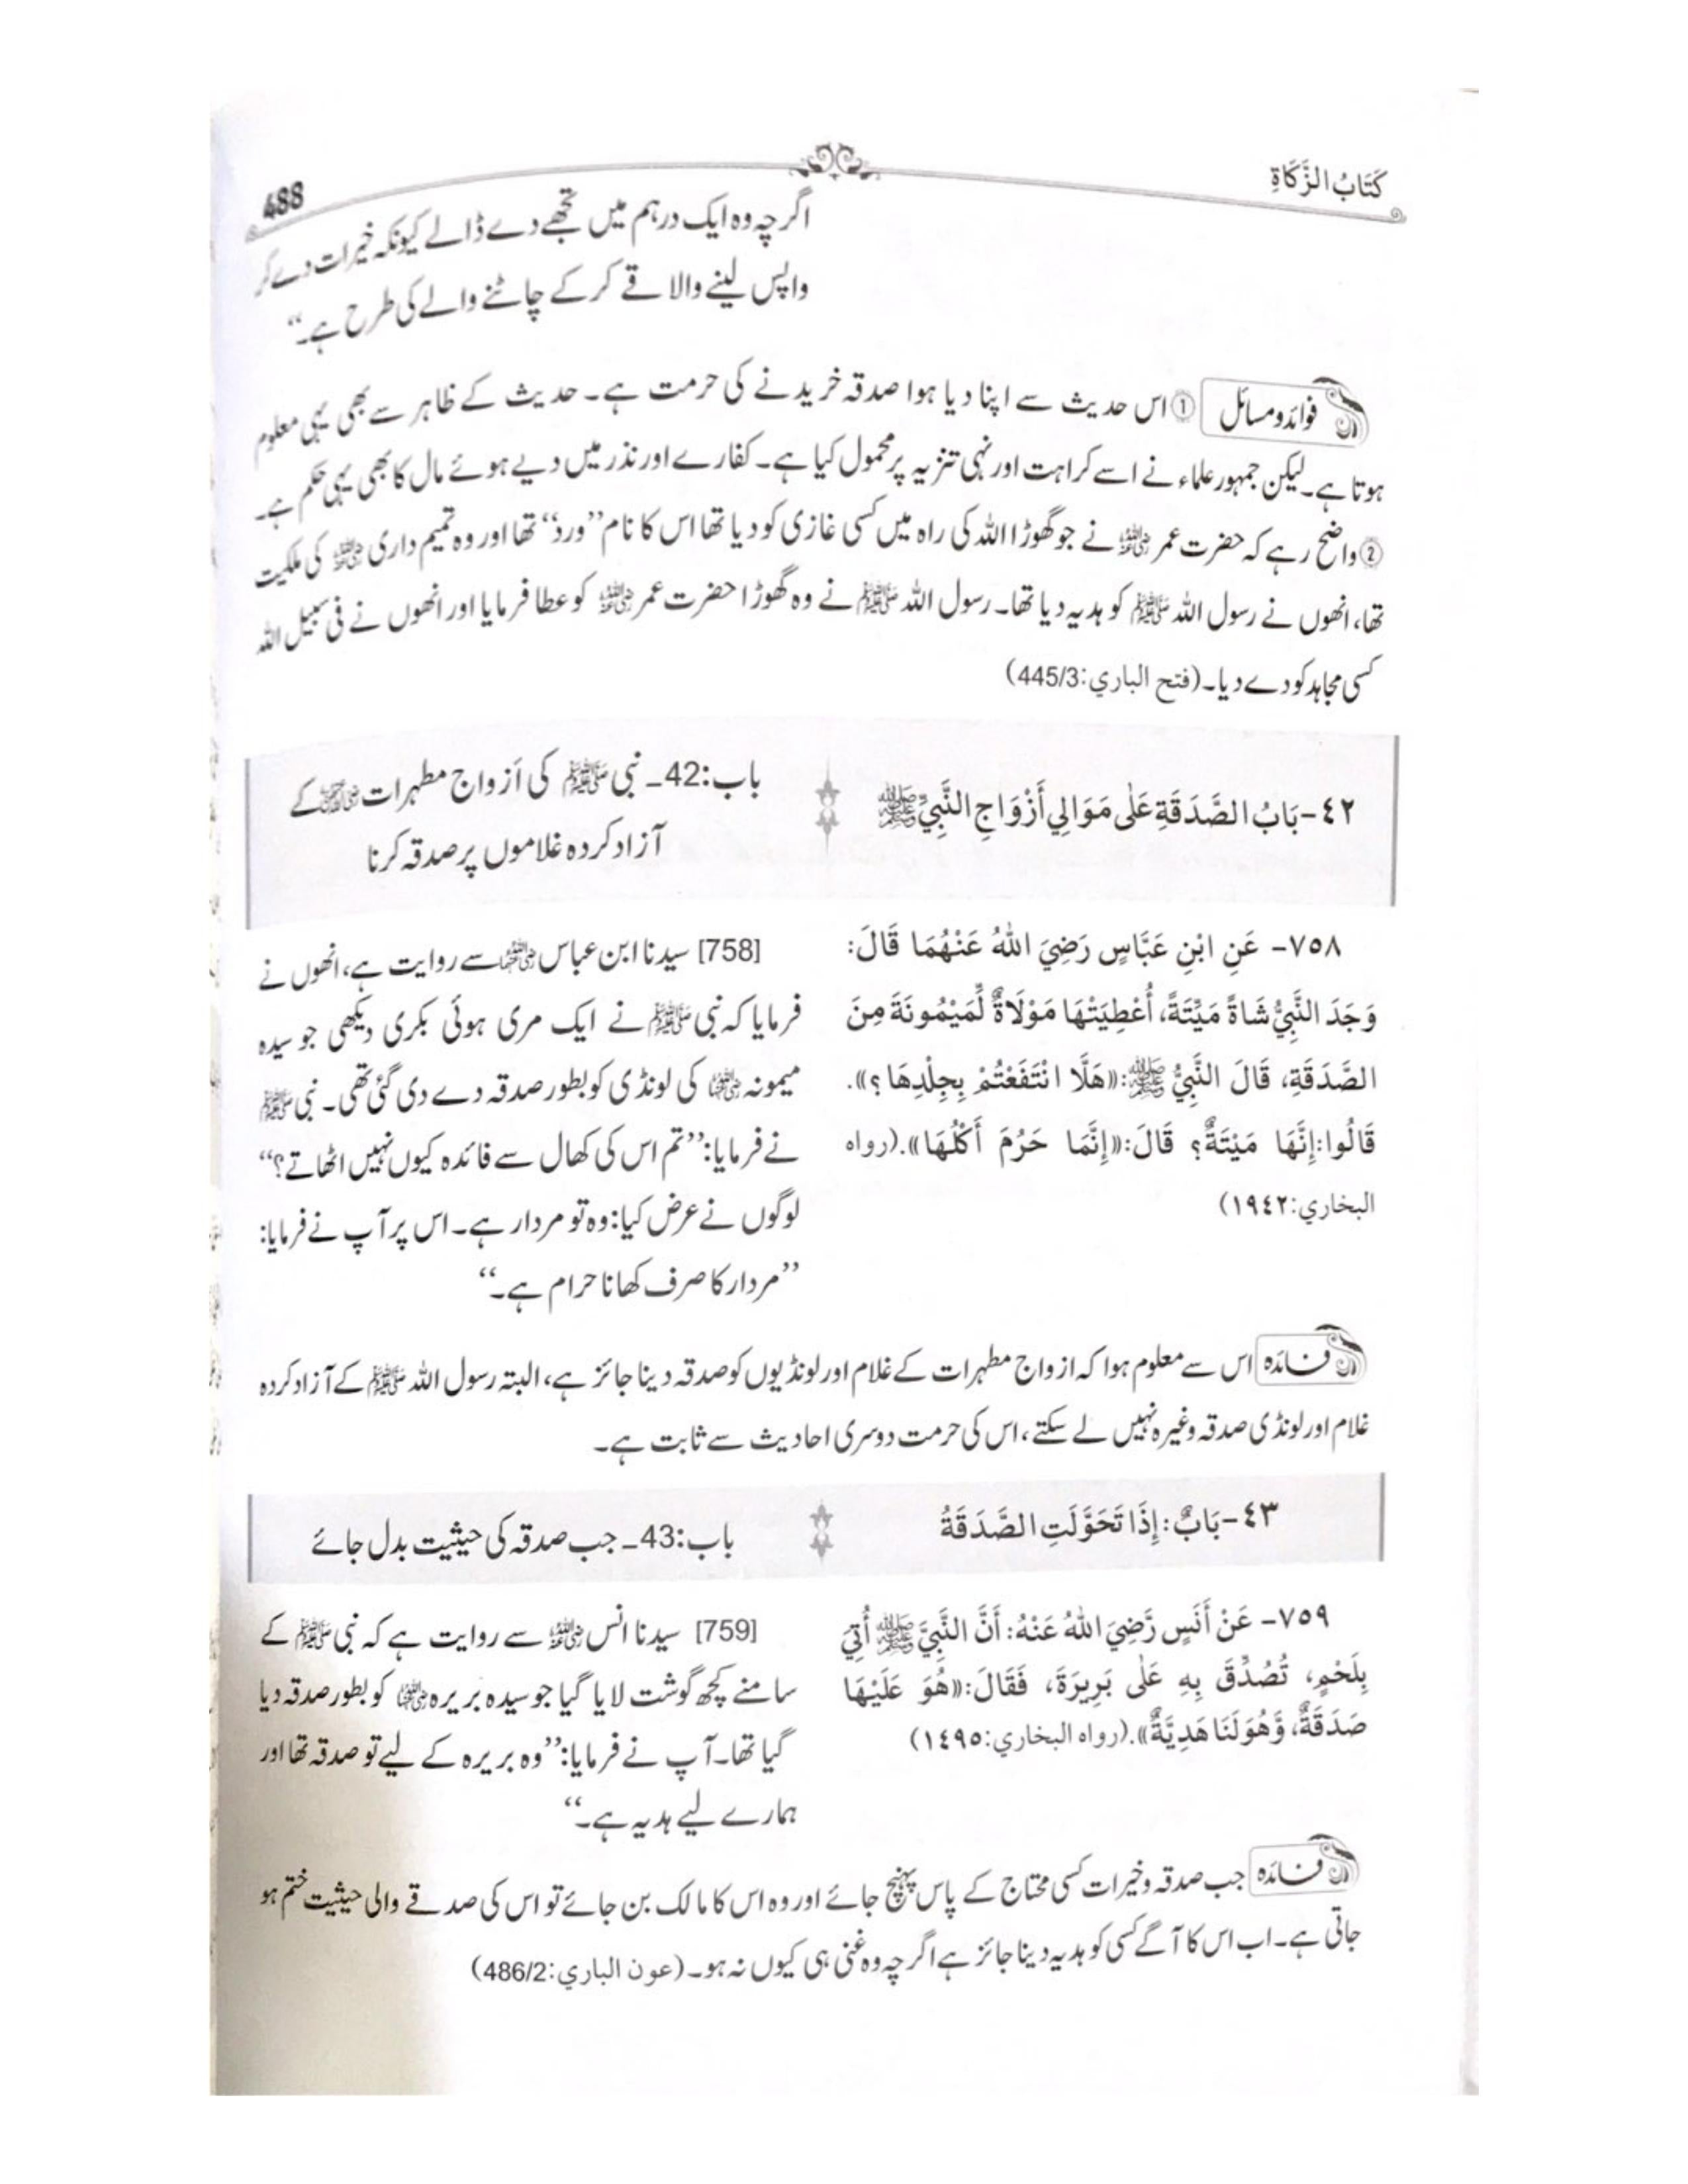 كَتَابُ الزَّكَاةِ
488
اگرچہ وہ ایک درہم میں تجھے دے ڈالے کیونکہ خیرات دے کر
واپس لینے والا قے کر کے چاٹنے والے کی طرح ہے۔‘‘
فوائد و مسائل ① اس حدیث سے اپنا دیا ہوا صدقہ خریدنے کی حرمت ہے۔ حدیث کے ظاہر سے بھی یہی معلوم
ہوتا ہے۔ لیکن جمہور علماء نے اسے کراہت اور نہی تنزیہ پر محمول کیا ہے۔ کفارے اور نذر میں دیے ہوئے مال کا بھی یہی حکم ہے۔
② واضح رہے کہ حضرت عمر رضی اللہ عنہ نے جو گھوڑا اللہ کی راہ میں کسی غازی کو دیا تھا اس کا نام ’’ورد‘‘ تھا اور وہ تمیم داری رضی اللہ عنہ کی ملکیت
تھا، انھوں نے رسول اللہ ﷺ کو ہدیہ دیا تھا۔ رسول اللہ ﷺ نے وہ گھوڑا حضرت عمر رضی اللہ عنہ کو عطا فرمایا اور انھوں نے فی سبیل اللہ
کسی مجاہد کو دے دیا۔ (فتح الباري:445/3)
٤٢- بَابُ الصَّدَقَةِ عَلٰى مَوَالِي أَزْوَاجِ النَّبِيِّ ﷺ
باب:42۔ نبی ﷺ کی اَزواج مطہرات رضی اللہ عنہن کے
آزاد کردہ غلاموں پر صدقہ کرنا
٧٥٨- عَنِ ابْنِ عَبَّاسٍ رَضِيَ اللهُ عَنْهُمَا قَالَ:
وَجَدَ النَّبِيُّ شَاةً مَيِّتَةً، أُعْطِيَتْهَا مَوْلَاةٌ لِّمَيْمُونَةَ مِنَ
الصَّدَقَةِ، قَالَ النَّبِيُّ ﷺ:((هَلَّا انْتَفَعْتُمْ بِجِلْدِهَا؟)).
قَالُوا:إِنَّهَا مَيْتَةٌ؟ قَالَ:((إِنَّمَا حَرُمَ أَكْلُهَا)).(رواه
البخاري:١٩٤٢)
[758] سیدنا ابن عباس رضی اللہ عنہما سے روایت ہے، انھوں نے
فرمایا کہ نبی ﷺ نے ایک مری ہوئی بکری دیکھی جو سیدہ
میمونہ رضی اللہ عنہا کی لونڈی کو بطور صدقہ دے دی گئی تھی۔ نبی ﷺ
نے فرمایا: ’’تم اس کی کھال سے فائدہ کیوں نہیں اٹھاتے؟‘‘
لوگوں نے عرض کیا: وہ تو مردار ہے۔ اس پر آپ نے فرمایا:
’’مردار کا صرف کھانا حرام ہے۔‘‘
فائدہ اس سے معلوم ہوا کہ ازواج مطہرات کے غلام اور لونڈیوں کو صدقہ دینا جائز ہے، البتہ رسول اللہ ﷺ کے آزاد کردہ
غلام اور لونڈی صدقہ وغیرہ نہیں لے سکتے، اس کی حرمت دوسری احادیث سے ثابت ہے۔
٤٣- بَابٌ: إِذَا تَحَوَّلَتِ الصَّدَقَةُ
باب:43۔ جب صدقہ کی حیثیت بدل جائے
٧٥٩- عَنْ أَنَسٍ رَّضِيَ اللهُ عَنْهُ: أَنَّ النَّبِيَّ ﷺ أُتِيَ
بِلَحْمٍ، تُصُدِّقَ بِهِ عَلٰى بَرِيرَةَ، فَقَالَ:((هُوَ عَلَيْهَا
صَدَقَةٌ، وَّهُوَ لَنَا هَدِيَّةٌ)).(رواه البخاري:١٤٩٥)
[759] سیدنا انس رضی اللہ عنہ سے روایت ہے کہ نبی ﷺ کے
سامنے کچھ گوشت لایا گیا جو سیدہ بریرہ رضی اللہ عنہا کو بطور صدقہ دیا
گیا تھا۔ آپ نے فرمایا: ’’وہ بریرہ کے لیے تو صدقہ تھا اور
ہمارے لیے ہدیہ ہے۔‘‘
فائدہ جب صدقہ و خیرات کسی محتاج کے پاس پہنچ جائے اور وہ اس کا مالک بن جائے تو اس کی صدقے والی حیثیت ختم ہو
جاتی ہے۔ اب اس کا آگے کسی کو ہدیہ دینا جائز ہے اگرچہ وہ غنی ہی کیوں نہ ہو۔ (عون الباري:486/2)